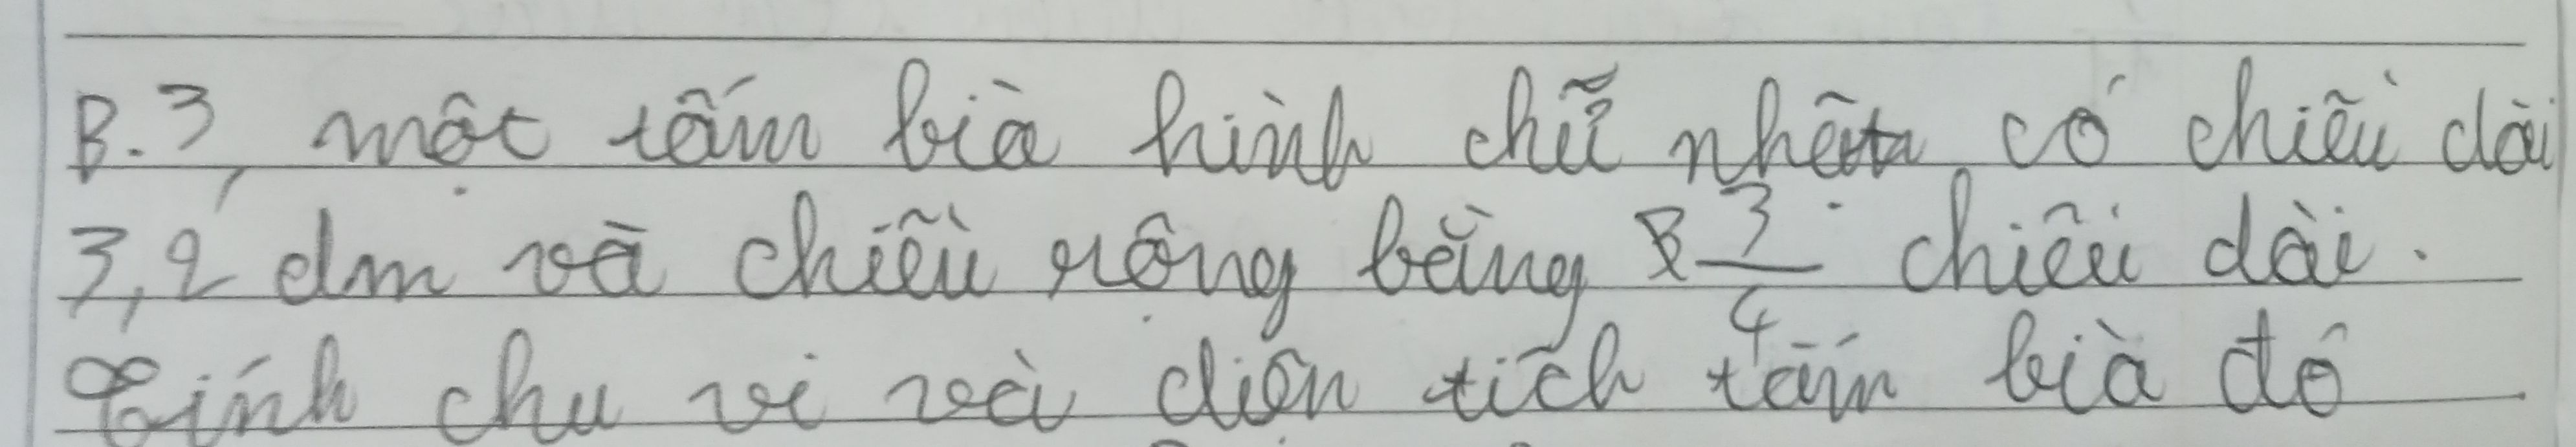 B.3, một tấm bìa hình chữ nhật có chiều dài
3,2 dm và chiều rộng bằng 3/4 chiều dài.
Tính chu vi và diện tích tấm bìa đó